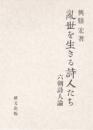 興膳 宏著
乱世を生きる詩人たち
六朝詩人論
研文出版